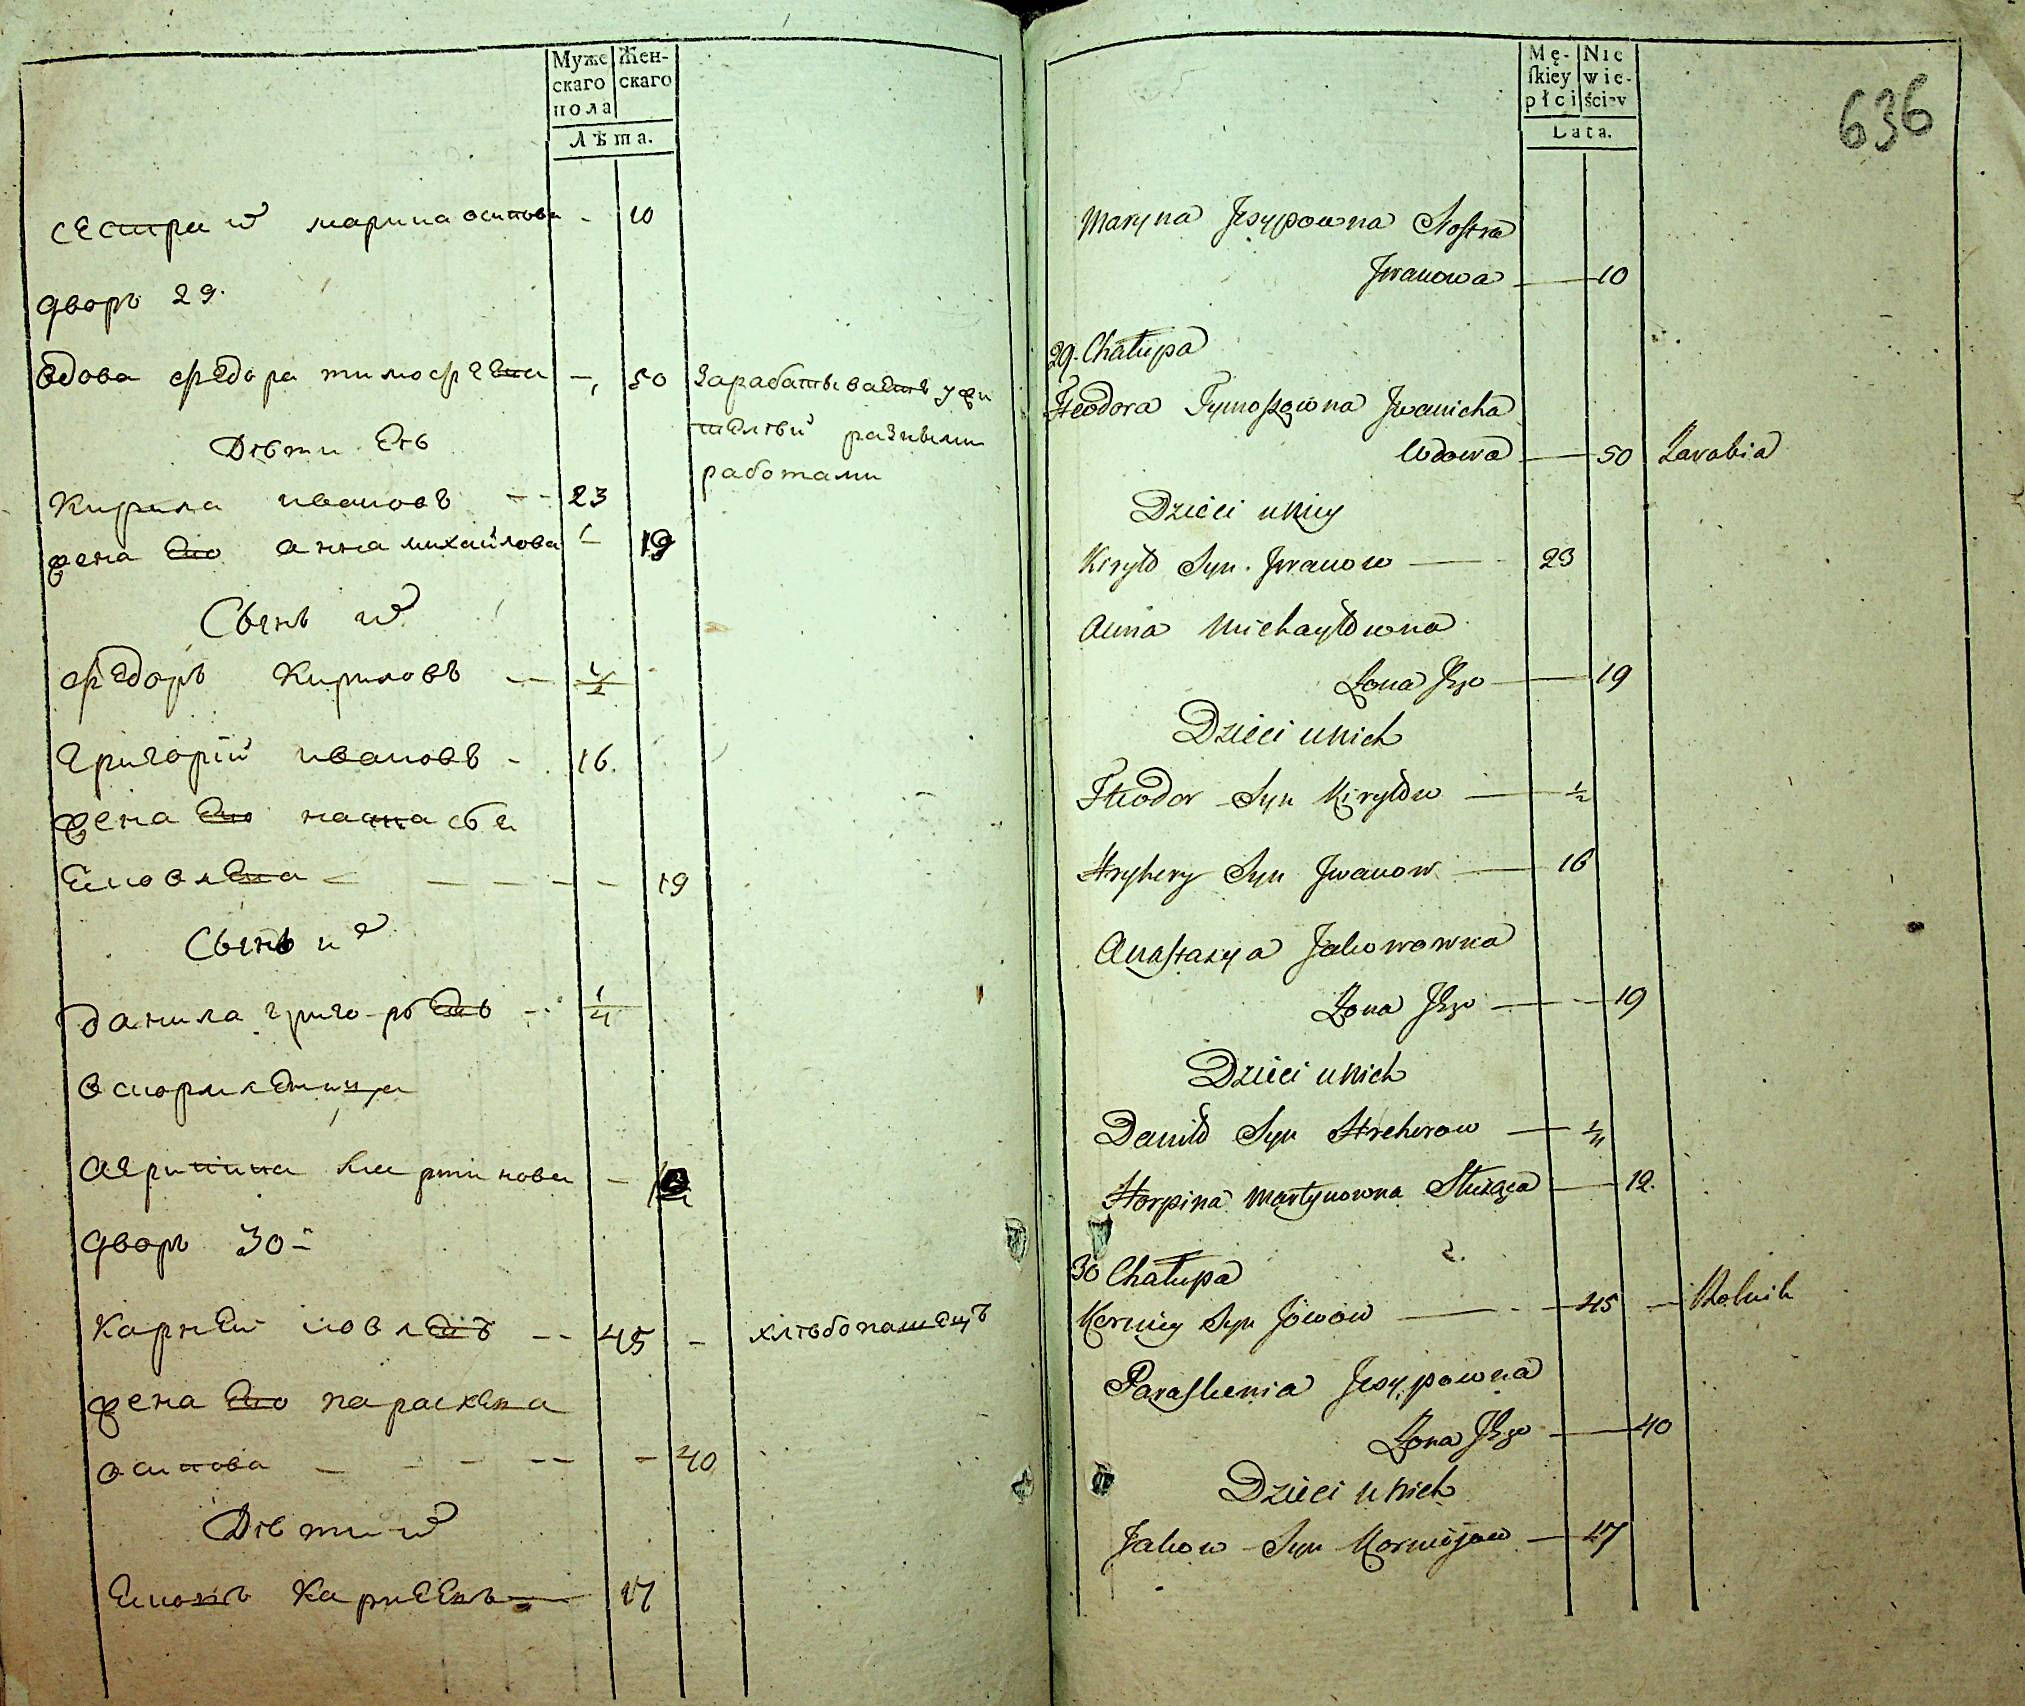 Муже
скаго
пола
Жен-
скаго
Лѣта.
сестра ихъ марина осипова - 10
дворъ 29.
вдова федора тимофеева - 50 зарабатываетъ у жи
телей разными
работами
Дѣти Еѣ
Кирила ивановъ -- 23
жена Его анна михайлова - 19
Сынъ ихъ
федоръ Кириловъ — 1/2
григорій ивановъ - 16.
жена Его настасья
Яковлева - - - - - 19
Сынъ ихъ
данила григорьевъ -- 1/4
вскормленица
агрипина мартинова -
дворъ 30-
Карней иовлевъ -- 45 - хлѣбопашецъ
жена Его параскева
осипова - - - -- - 40
Дѣти ихъ
Яковъ Карнеевъ — 17
Mę-
skiey
płci
Nie
wie-
ściey
Lata.
636
Maryna Jesypowna Siostra
Jwanowa — 10
29. Chałupa
Fteodora Tymoszowna Jwanicha
Wdowa — 50 Zarabia
Dzieci u Niey
Kiryło Syn Jwanow — 23
Anna Michayłowna
Żona Jego — 19
Dzieci u Nich
Fteodor Syn Kiryłow — 1/2
Hryhery Syn Jwanow — 16
Anastazya Jakowowna
Żona Jego — 19
Dzieci u Nich
Daniło Syn Hrehorow — 1/4
Horpina Martynowna Służąca — 12.
30 Chałupa
Korniey Syn Jowow — 45 — Rolnik
Paraskenia Jesypowna
Żona Jego — 40
Dzieci u Nich
Jakow Syn Kornijow — 17